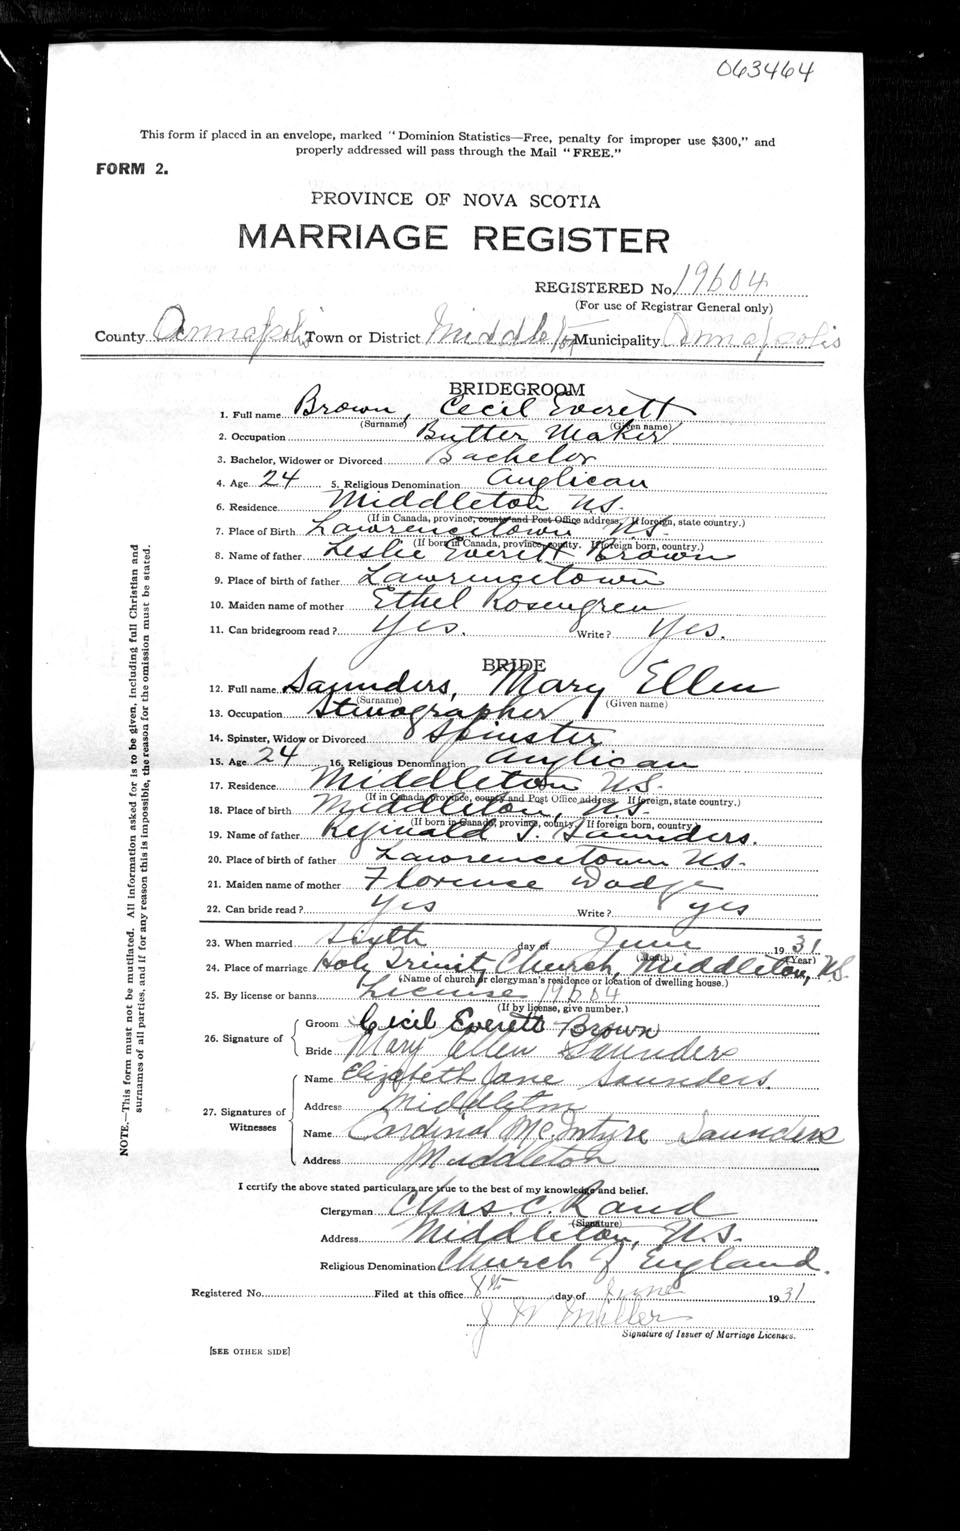 063464
This form if placed in an envelope, marked "Dominion Statistics—Free, penalty for improper use $300," and
properly addressed will pass through the Mail "FREE."
FORM 2.
PROVINCE OF NOVA SCOTIA
MARRIAGE REGISTER
REGISTERED No. 19604
(For use of Registrar General only)
County Annapolis Town or District Middleton Municipality Annapolis
BRIDEGROOM
1. Full name Brown, Cecil Everett
(Surname) (Given name)
2. Occupation Butter Maker
3. Bachelor, Widower or Divorced Bachelor
4. Age 24 5. Religious Denomination Anglican
6. Residence Middleton N.S.
(If in Canada, province, county and Post Office address, If foreign, state country.)
7. Place of Birth Lawrencetown N.S.
(If born in Canada, province, county. If foreign born, country.)
8. Name of father Leslie Everett Brown
9. Place of birth of father Lawrencetown
10. Maiden name of mother Ethel Rosengren
11. Can bridegroom read? Yes. Write? Yes.
BRIDE
12. Full name Saunders, Mary Ellen
(Surname) (Given name)
13. Occupation Stenographer
14. Spinster, Widow or Divorced Spinster
15. Age 24 16. Religious Denomination Anglican
17. Residence Middleton N.S.
(If in Canada, province, county and Post Office address. If foreign, state country.)
18. Place of birth Middleton, N.S.
(If born in Canada, province, county. If foreign born, country.)
19. Name of father Reginald J. Saunders.
20. Place of birth of father Lawrencetown N.S.
21. Maiden name of mother Florence Dodge
22. Can bride read? Yes Write? yes
23. When married Sixth day of June 1931
(Month) (Year)
24. Place of marriage Holy Trinity Church, Middleton, N.S.
(Name of church or clergyman's residence or location of dwelling house.)
25. By license or banns License 19604
(If by license, give number.)
26. Signature of
Groom Cecil Everett Brown
Bride Mary Ellen Saunders
27. Signatures of Witnesses
Name Elizabeth Jane Saunders.
Address Middleton
Name Cardinal McIntyre Saunders
Address Middleton
I certify the above stated particulars are true to the best of my knowledge and belief.
Clergyman Chas. C. Rand
(Signature)
Address Middleton, N.S.
Religious Denomination Church of England.
Registered No. Filed at this office 8th day of June 1931
J W Miller
Signature of Issuer of Marriage Licenses.
[SEE OTHER SIDE]
NOTE.—This form must not be mutilated. All information asked for is to be given, including full Christian and
surnames of all parties, and if for any reason this is impossible, the reason for the omission must be stated.